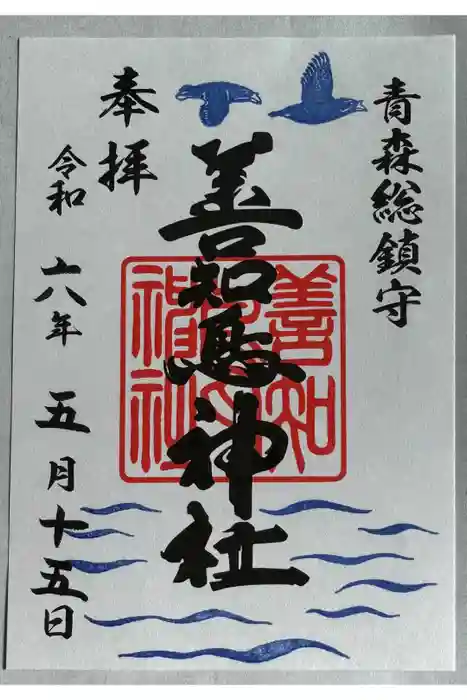 青森総鎮守
奉拝
善知鳥神社
善知鳥神社
令和六年五月十五日